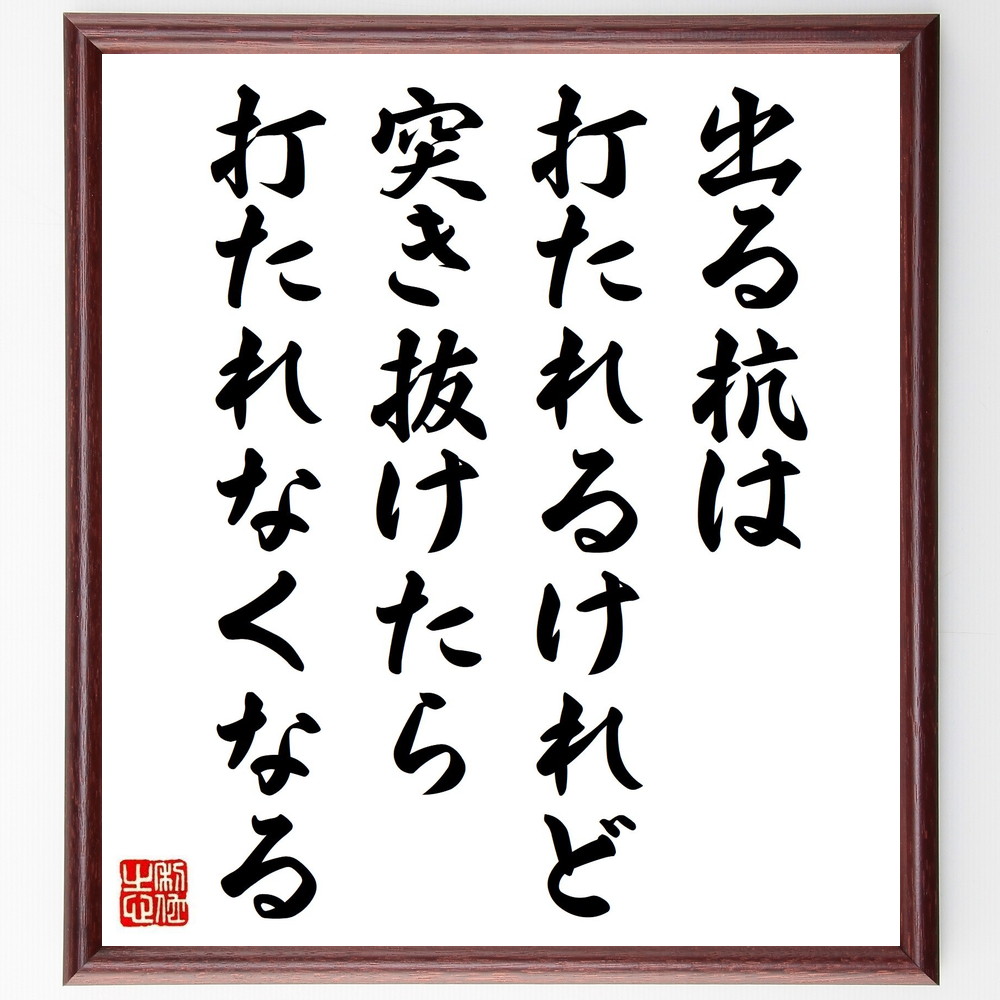 出る杭は
打たれるけれど
突き抜けたら
打たれなくなる